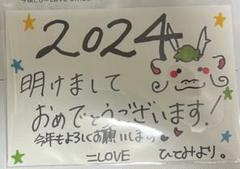 2024
明けまして
おめでとうございます!
今年もよろしくお願いします
=LOVE ひとみより。